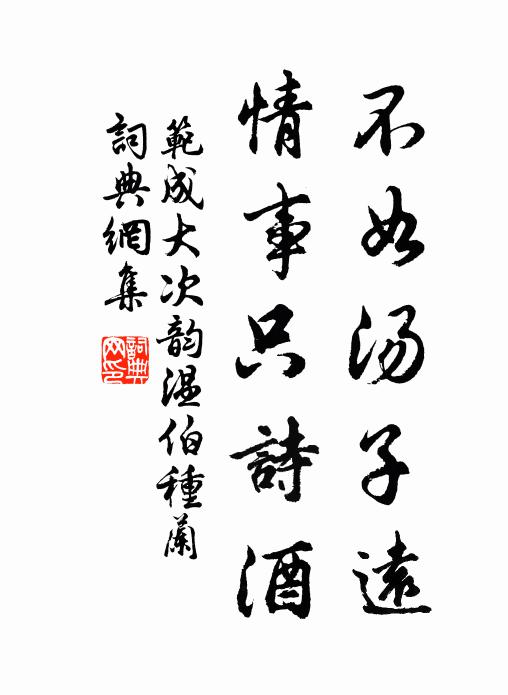 不如湯子遠
情事只詩酒
範成大次韵温伯種蘭
詞典網集
詞典网印